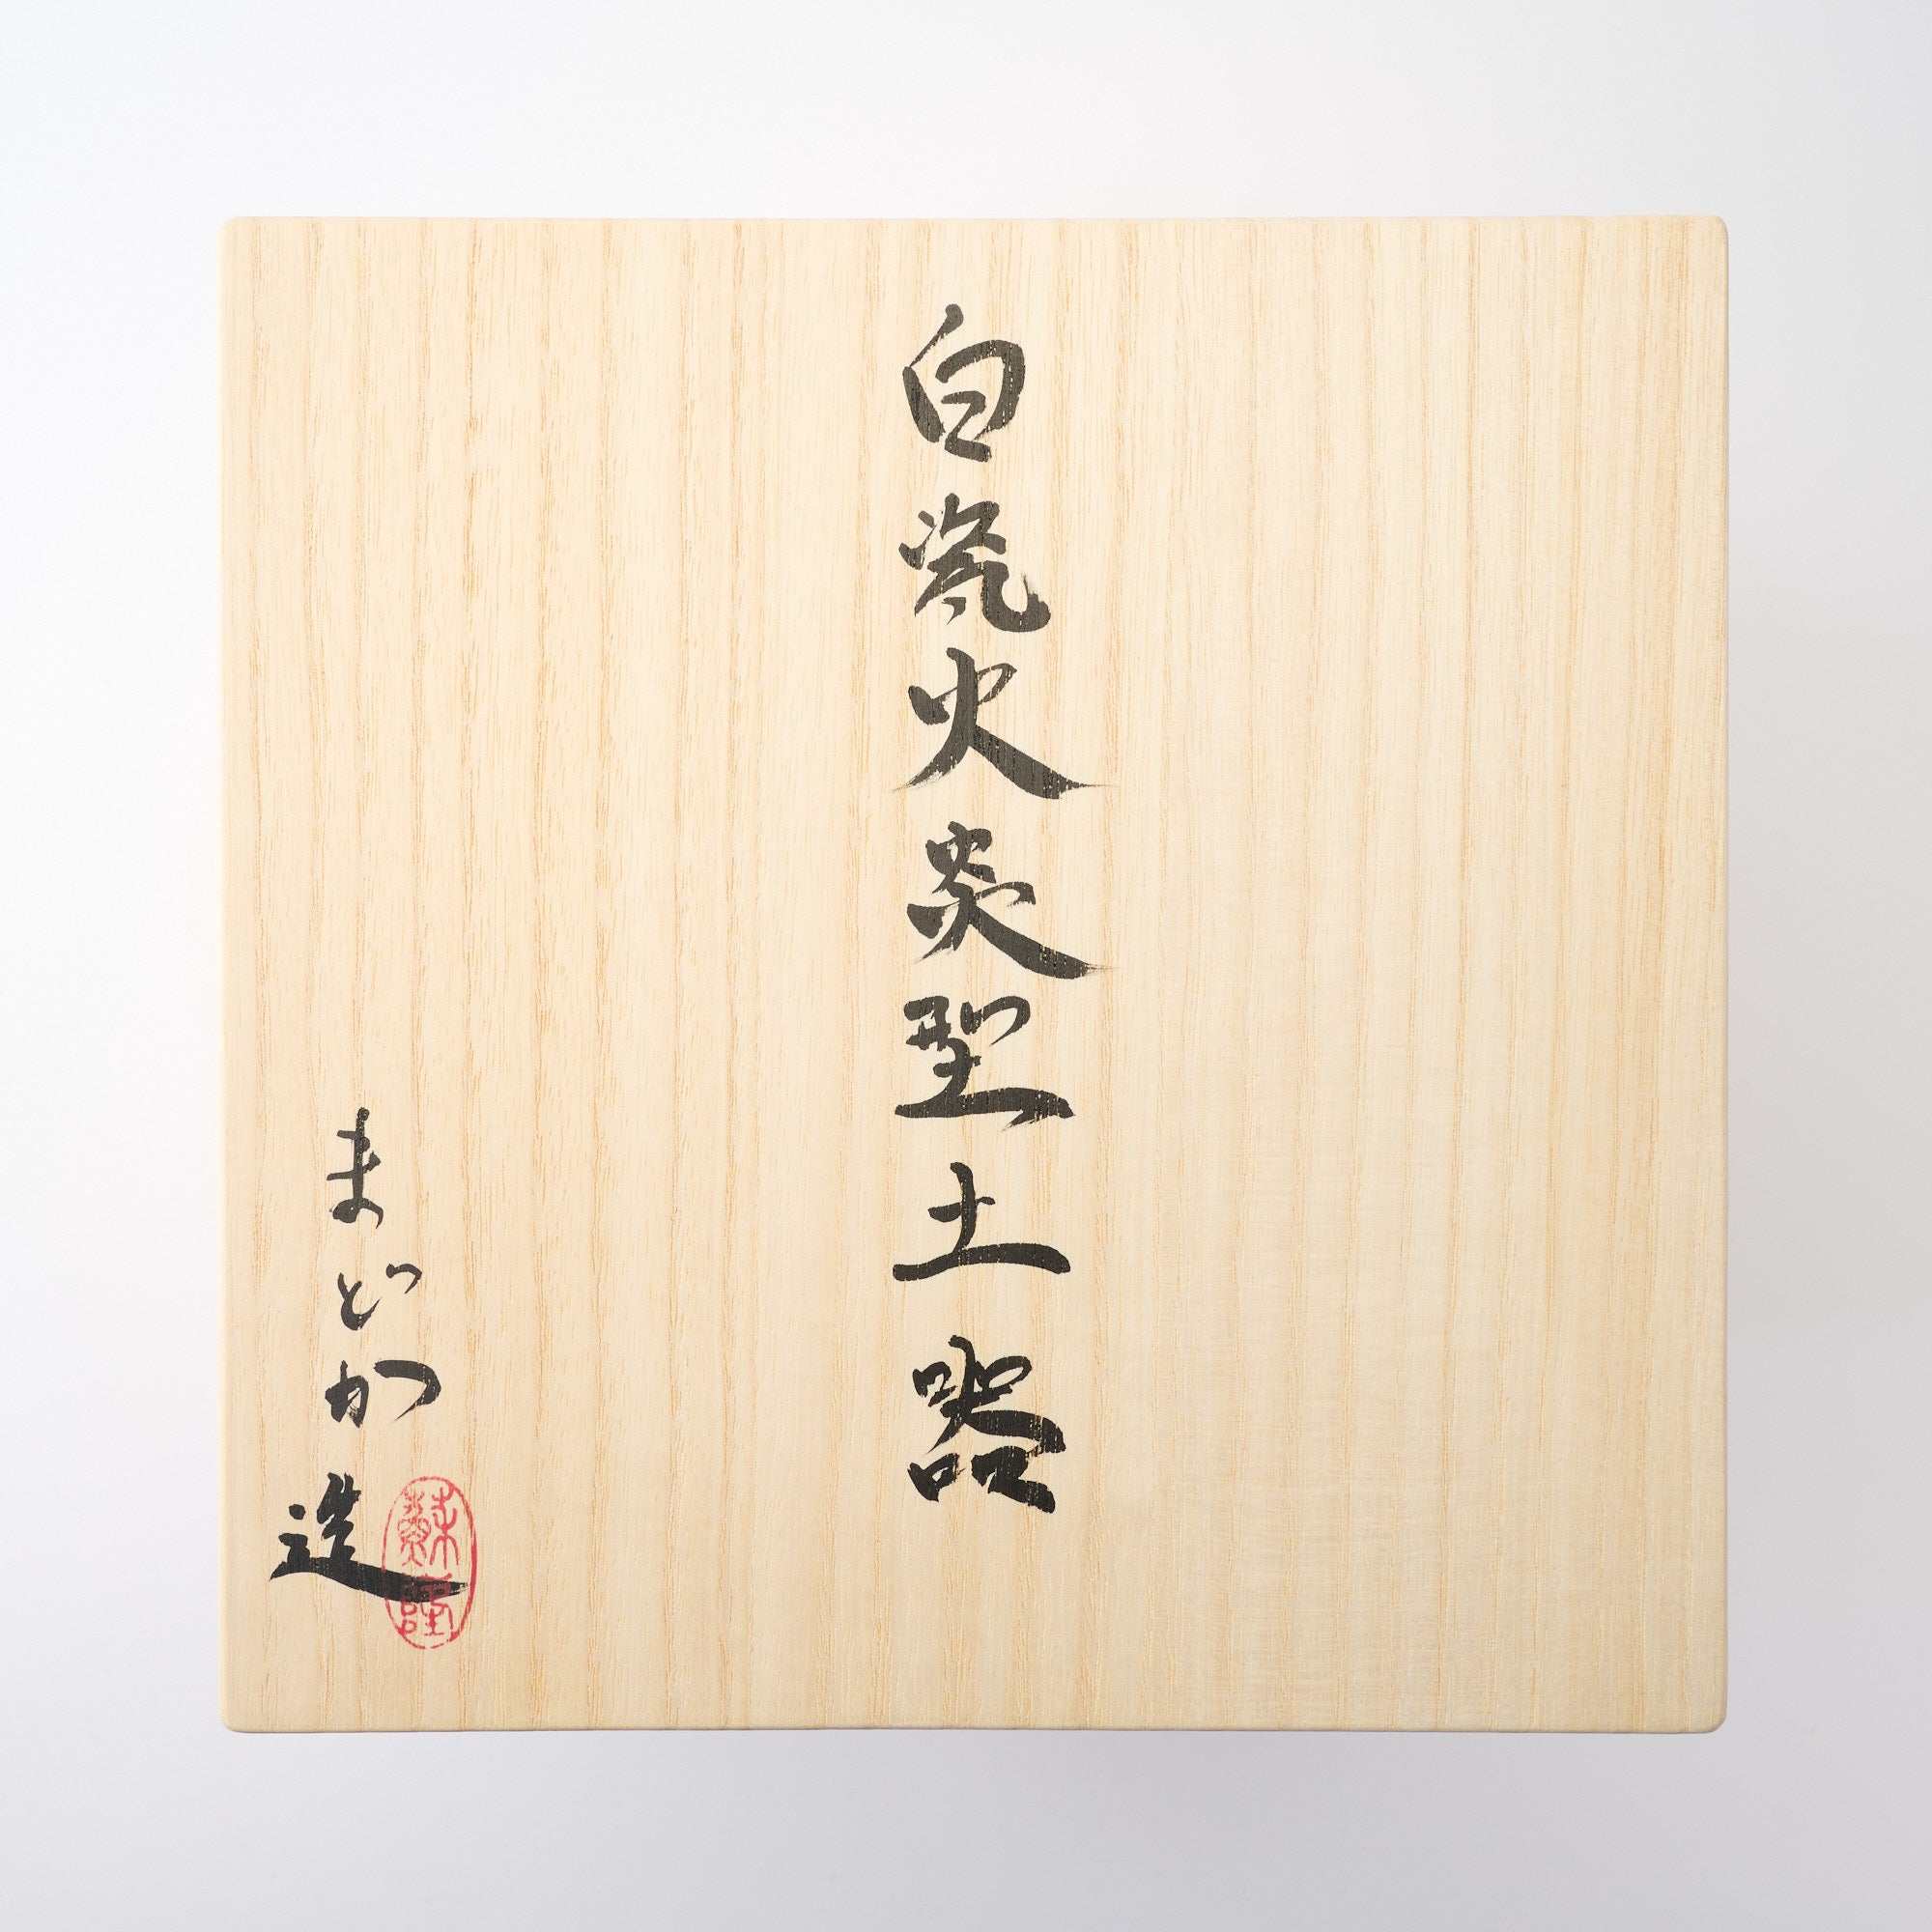 白瓷火炎型土器
まどか造